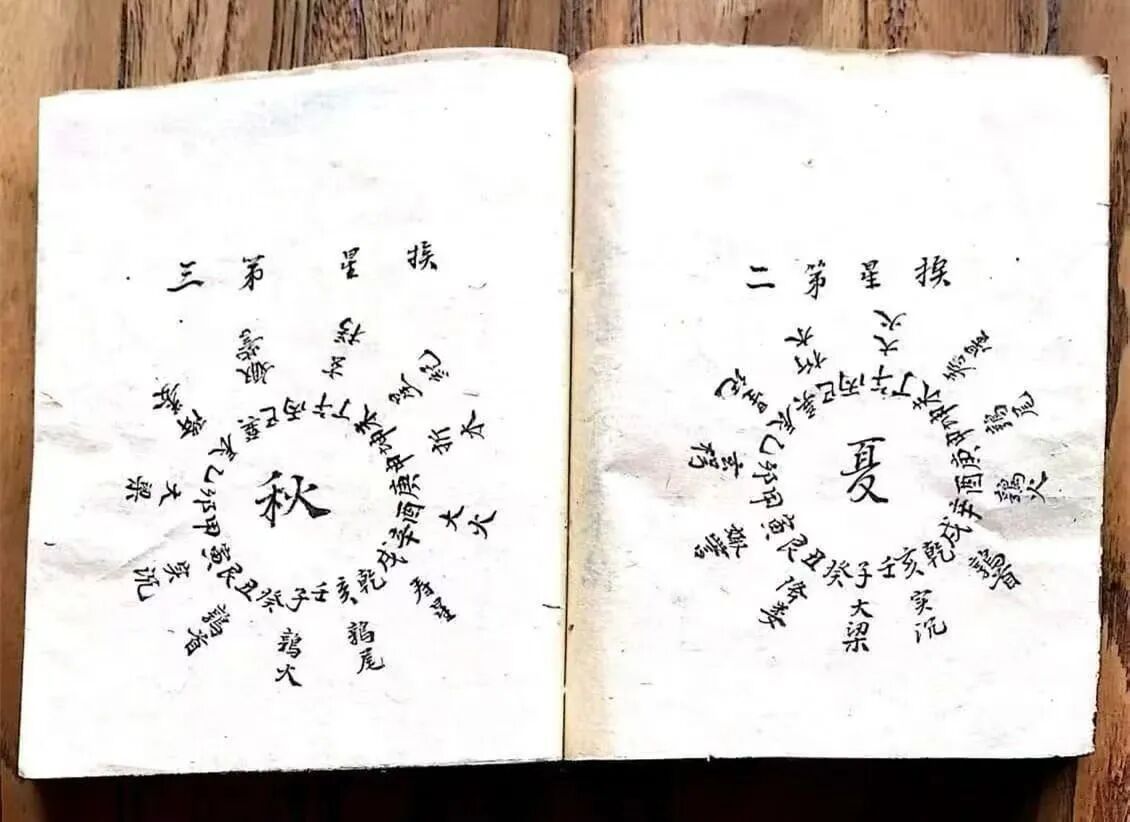 挨星第二
夏
午丁未坤申庚酉辛戌乾亥壬子癸丑艮寅甲卯乙辰巽巳丙
大火
寿星
鶉尾
鶉火
鶉首
实沉
大梁
降娄
娵訾
玄枵
星纪
析木
挨星第三
秋
午丁未坤申庚酉辛戌乾亥壬子癸丑艮寅甲卯乙辰巽巳丙
玄枵
星纪
析木
大火
寿星
鶉尾
鶉火
鶉首
实沉
大梁
降娄
娵訾